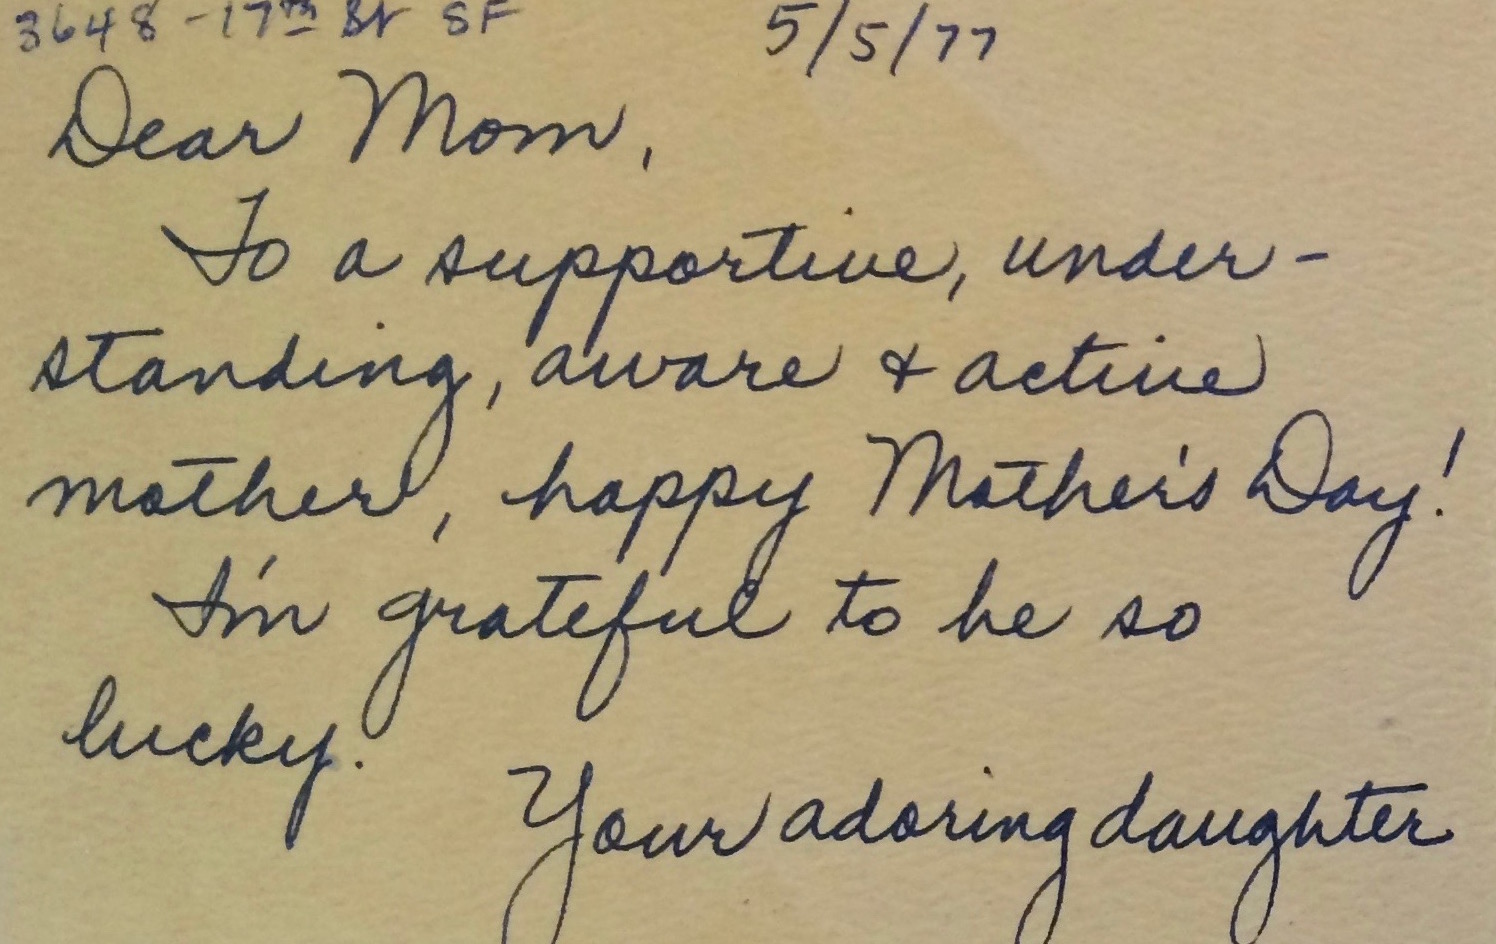 3648 - 17th St SF 5/5/77
Dear Mom,
To a supportive, under-
standing, aware & active
mother, happy Mother's Day!
I'm grateful to be so
lucky.
Your adoring daughter